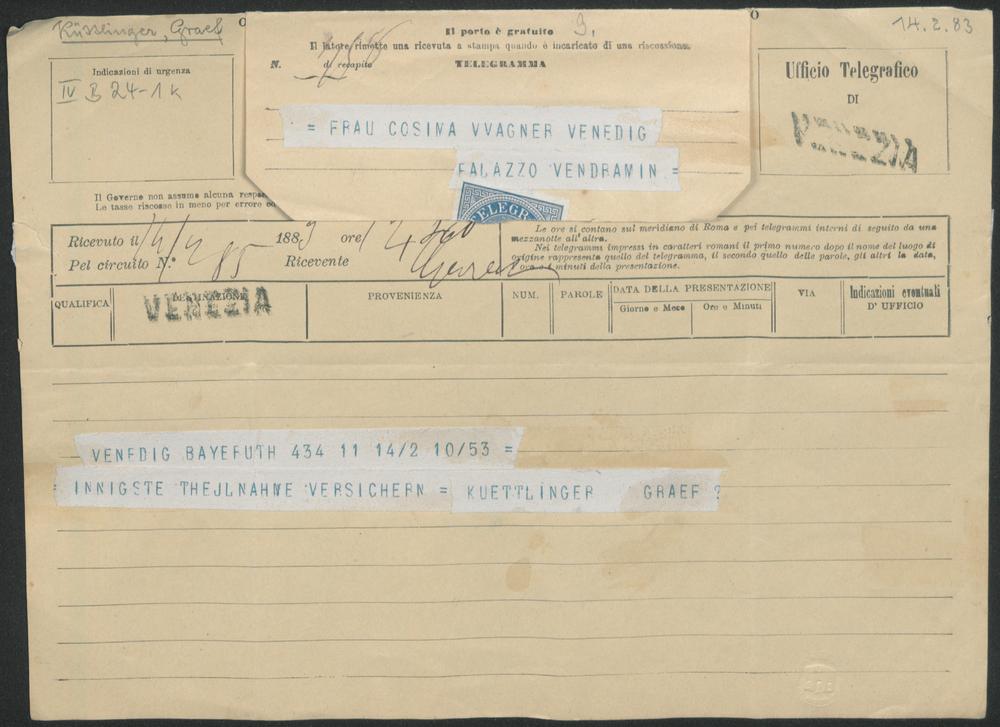 Küsslinger, Graef
14.2.83
Il porto è gratuito
9.
Il latore rimette una ricevuta a stampa quando è incaricato di una riscossione.
N. di recapito
TELEGRAMMA
Indicazioni di urgenza
IV B 24-1k
Ufficio Telegrafico
DI
VENEZIA
= FRAU COSIMA VVAGNER VENEDIG
PALAZZO VENDRAMIN =
TELEGR
Il Governo non assume alcuna
Le tasse riscosse in meno per errore
Ricevuto il 14/2 1883 ore
Pel circuito N.º 85 Ricevente
Le ore si contano sul meridiano di Roma e pei telegrammi interni di seguito da una
mezzanotte all'altra.
Nei telegrammi impressi in caratteri romani il primo numero dopo il nome del luogo di
origine rappresenta quello del telegramma, il secondo quello delle parole, gli altri la data,
l'ora e i minuti della presentazione.
QUALIFICA
DESTINAZIONE
VENEZIA
PROVENIENZA
NUM.
PAROLE
DATA DELLA PRESENTAZIONE
Giorno e Mese
Ore e Minuti
VIA
Indicazioni eventuali
D'UFFICIO
VENEDIG BAYERUTH 434 11 14/2 10/53 =
= INNIGSTE THEJLNAHME VERSICHERN = KUETTLINGER GRAEF ?